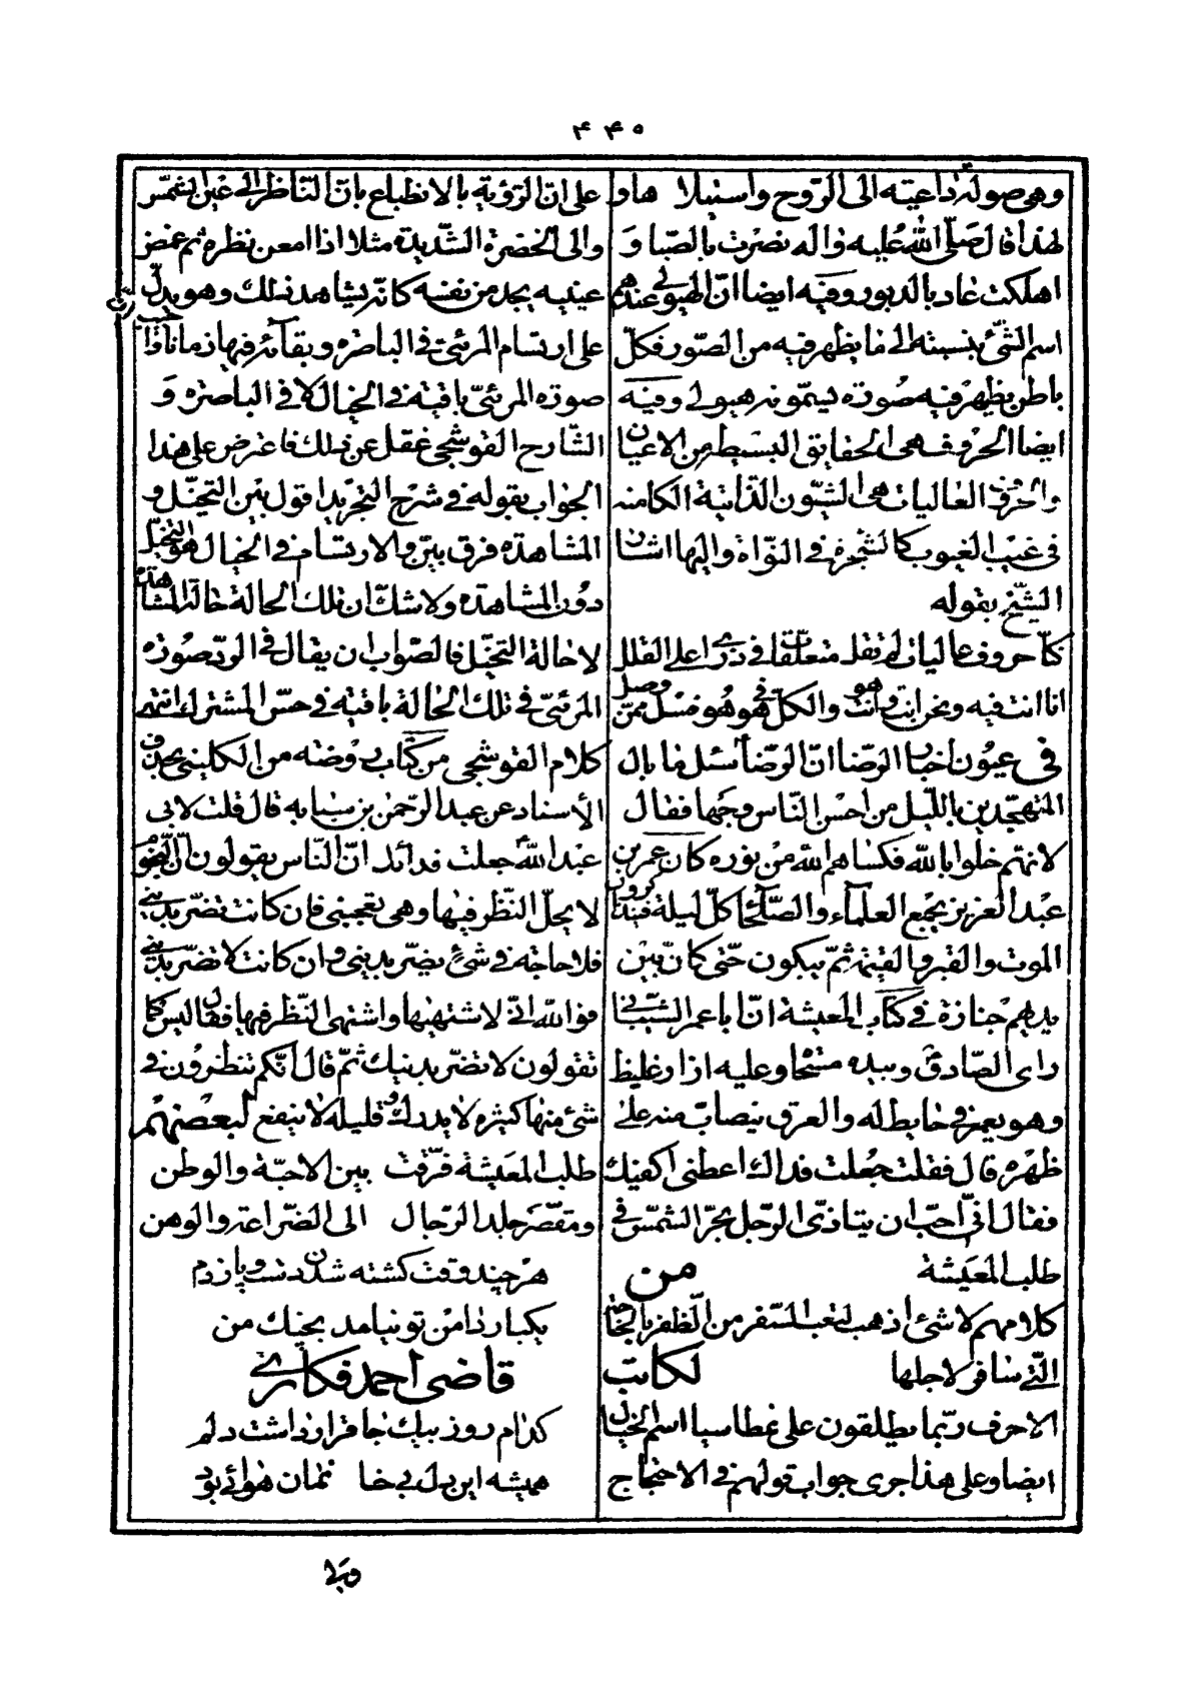 ۴۴۵
وهی صولة داعیته الی الرّوح واستیلاؤها و
لهذا قال صلّی الله علیه واله نصرت بالصّبا وَ
اهلکت عاد بالدبور وفیه ایضا انّ الهیولی عندهم
اسم الشّئ بنسبته الی ما یظهر فیه من الصّور فکلّ
باطن یظهر فیه صُورة یسمّونه هیولی وفیه
ایضا الحروف هی الحقایق البسیطه من الاعیان
والحرُوف العالیات هی الشیون الذّاتیة الکامنه
فی غیب الغیوب کالشجرة فی النّواة والیها اشار
الشّیخ بقوله
کنّا حروف عالیات لم نقل متعلّقات فی ذری اعلی القلل
انا انت فیه ونحن انت وانت هو والکلّ فی هو هُو فسَل عمّن وصل
فی عیُون اخبار الرّضا انّ الرّضا سئل ما بال
المتهجّدین باللّیل من احسن النّاس وجها فقال
لانهم خلوا بالله فکساهم الله من نوره کان عمر بن
عبد العزیز یجمع العلمآء والصّلحآء کلّ لیلة فیتذاکرون
الموت والقبر والقیٰمة ثمّ یبکون حتّی کانّ بین
یدیهم جنازة فی کتاب المعیشة انّ ابا عمر الشّیبانی
رای الصّادق وبیده مسحا وعلیه ازار غلیظ
وهو یعمل فی حایط له والعرق یتصابّ منه علیٰ
ظهره قال فقلت جُعلت فداك اعطنی اکفیك
فقال انّی اُحبّ ان یتاذّی الرّجل بحرّ الشمّس فی
طلب المعیشة من
کلامهم لا شئ اذهب لتعب السّفر من الظّفر بالحاجة
الّتی سافر لاجلها لکاتب
الاحرف ربّما یطلقون علی غطاسیا اسم الخیال
ایضا وعلی هذا جری جواب قولهم فی الاحتجاج
علی ان الرّؤیة بالانطباع بانّ النّاظر الی عین الشّمس
والی الخضرة الشّدیدة مثلا اذا امعن نظره ثم غمض
عینیه یجد من نفسه کانّه یشاهد ذلك وهو یدلّ
علی ارتسام المرئی فی الباصره وبقآئه فیها زمانا
صورة المرئی باقیة فی الخیال لا فی الباصرة وَ
الشّارح القوشجی غفل عن ذلك فاعترض علی هذا
الجواب بقوله فی شرح التجرید اقول بین التخیّل و
المشاهدة فرق بیّن والارتسام فی الخیال هو التخیّل
دون المشاهدة ولا شكّ ان تلك الحالة حالة المشاهدة
لا حالة التخیّل فالصّواب ان یقال فی الردّ صورة
المرئی فی تلك الحالة باقیة فی حسّ المشترك انتهی
کلام القوشجی من کتاب روضه من الکلینی بحذف
الأسناد عن عبد الرّحمٰن بن سیابه قال قلت لابی
عبد الله جعلت فداك انّ النّاس یقولون انّ النّجُوم
لا یحلّ النّظر فیها وهی تعجبنی فان کانت تضرّ بدینی
فلا حاجة فی شئ یضرّ بدینی وان کانت لا تضرّ بدینی
فوالله انّی لاشتهیها واشتهی النّظر فیها فقال لیس کما
تقولون لا تضرّ بدینك ثمّ قال انّکم تنظرُون فی
شئ منها کثیره لا یدرك وقلیله لا ینفع لبعضهم
طلب المعَیشة فرّقت بین الاحبّة والوطن
ومقصّر جلد الرّجال الی الضّراعة والوهن
هرچند وقت کشته شدن دست و پا زدم
یکبار دامن تو نیامد بچنك من
قاضی احمد فکاری
کدام روز بیك جا قرار داشت دلم
همیشه این دل بی خانمان هوائی بود